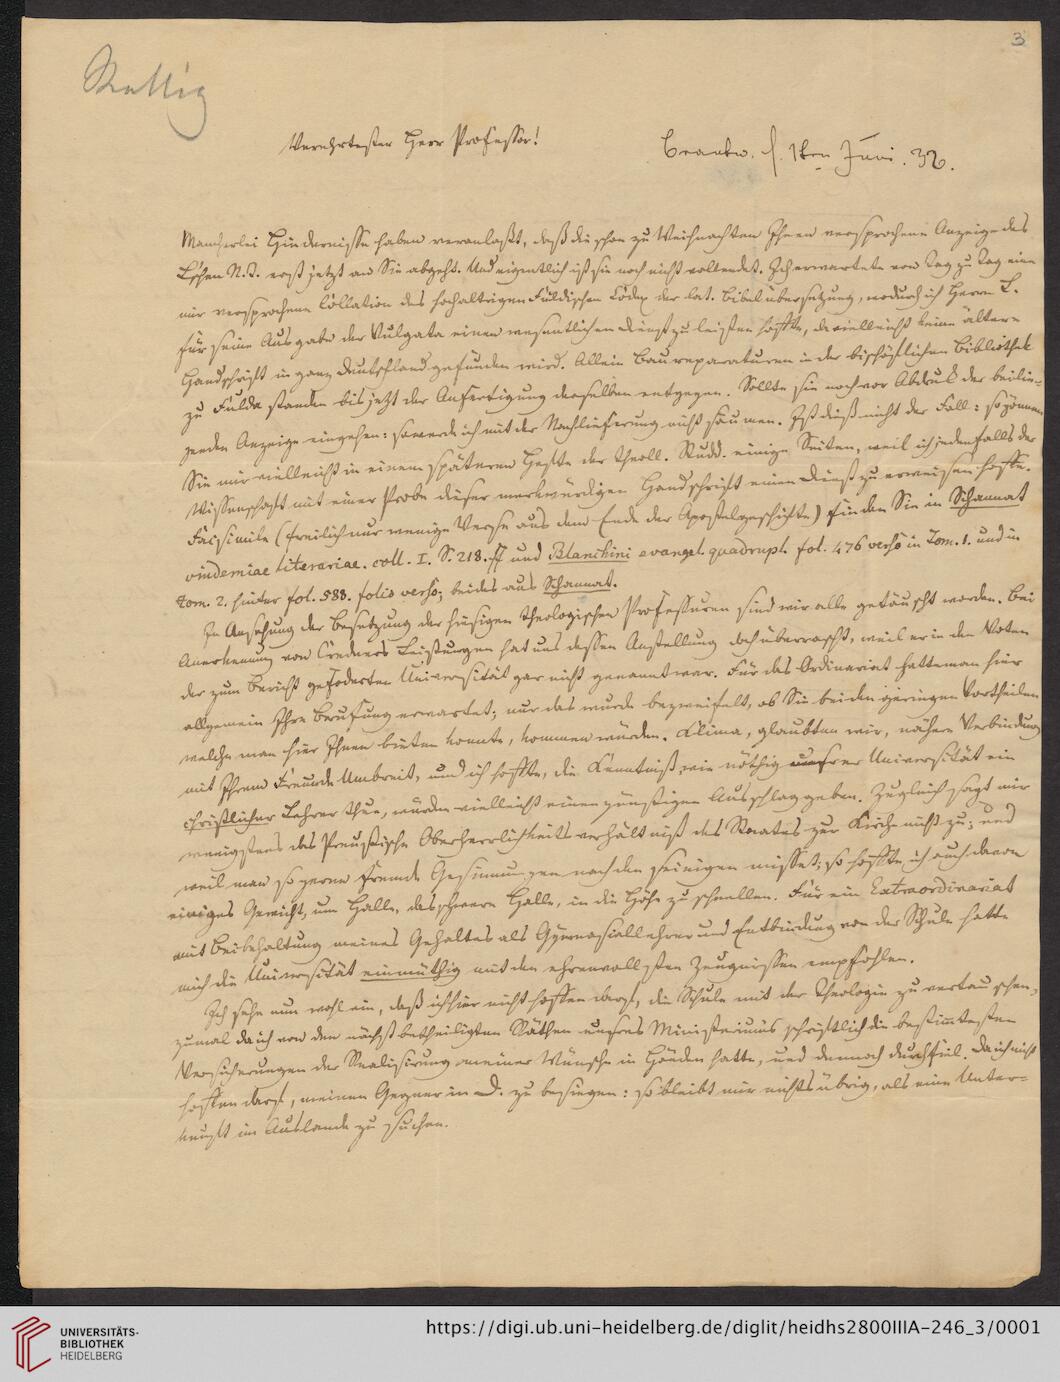 3
Rettig
Verehrtester Herr Professor!
Beantw. d. 1ten Juni. 32.
Mancherlei Hindernisse haben veranlaßt, daß die schon zu Weihnachten Ihnen versprochene Anzeige des
L'schen N. T. erst jetzt an Sie abgeht. Und eigentlich ist sie noch nicht vollendet. Ich erwartete von Tag zu Tag eine
mir versprochene Collation des hochaltrigen Fuldischen Codex der lat. Bibelübersetzung, wodurch ich Herrn L.
für seine Ausgabe der Vulgata einen wesentlichen Dienst zu leisten hoffte, da vielleicht keine ältere
Handschrift in ganz Deutschland gefunden wird. Allein Baureparaturen in der bischöflichen Bibliothek
zu Fulda standen bis jetzt der Anfertigung derselben entgegen. Sollte sie noch vor Abdruck der beilie-
genden Anzeige eingehen: so werde ich mit der Nachlieferung nicht säumen. Ist dieß nicht der Fall: so gönnen
Sie mir vielleicht in einem späteren Hefte der theoll. Studd. einige Seiten, weil ich jedenfalls der
Wissenschaft mit einer Probe dieser merkwürdigen Handschrift einen Dienst zu erweisen hoffe.
Facsimile (freilich nur wenige Verse aus dem Ende der Apostelgeschichte) finden Sie in Schannat
vindemiae literariae. coll. I. S. 218. ff und Blanchini evangel. quadrupl. fol. 476 verso in Tom. 1. und in
tom. 2. hinter fol. 588. folio verso; beides aus Schannat.
In Ansehung der Besetzung der hiesigen theologischen Professuren sind wir alle getäuscht worden. Bei
Anerkennung von Credners Leistungen hat uns dessen Anstellung doch überrascht, weil er in den Voten
der zum Bericht gefoderten Universität gar nicht genannt war. Für das Ordinariat hatte man hier
allgemein Ihre Berufung erwartet; nur das wurde bezweifelt, ob Sie bei den geringen Vortheilen
welche man hier Ihnen bieten konnte, kommen würden. Clima, glaubten wir, nähere Verbindung
mit Ihrem Freunde Umbreit, und ich hoffte, die Kenntniß, wie nöthig unsrer Universität ein
christlicher Lehrer thue, würden vielleicht einen günstigen Ausschlag geben. Zugleich sagt mir
wenigstens das Preußische Oberherrlichkeitsverhältniß des Staates zur Kirche nicht zu; und
weil man so gerne fremde Gesinnungen nach den seinigen misset; so hoffte ich auch davon
einiges Gewicht, um Halle, das schwere Halle, in die Höhe zu schnellen. Für ein Extraordinariat
mit Beibehaltung meines Gehaltes als Gymnasiallehrer und Entbindung von der Schule hatte
mich die Universität einmüthig mit den ehrenvollsten Zeugnissen empfohlen.
Ich sehe nun wohl ein, daß ich hier nicht hoffen darf, die Schule mit der Theologie zu vertauschen,
zumal da ich von den nächst betheiligten Räthen unsres Ministeriums schriftlich die bestimtesten
Versicherungen der Realisirung meiner Wünsche in Händen hatte, und dennoch durchfiel. Da ich nicht
hoffen darf, meinen Gegner in D. zu besiegen: so bleibt mir nichts übrig, als eine Unter-
kunft im Auslande zu suchen.
UNIVERSITÄTS-
BIBLIOTHEK
HEIDELBERG
https://digi.ub.uni-heidelberg.de/diglit/heidhs2800IIIA-246_3/0001